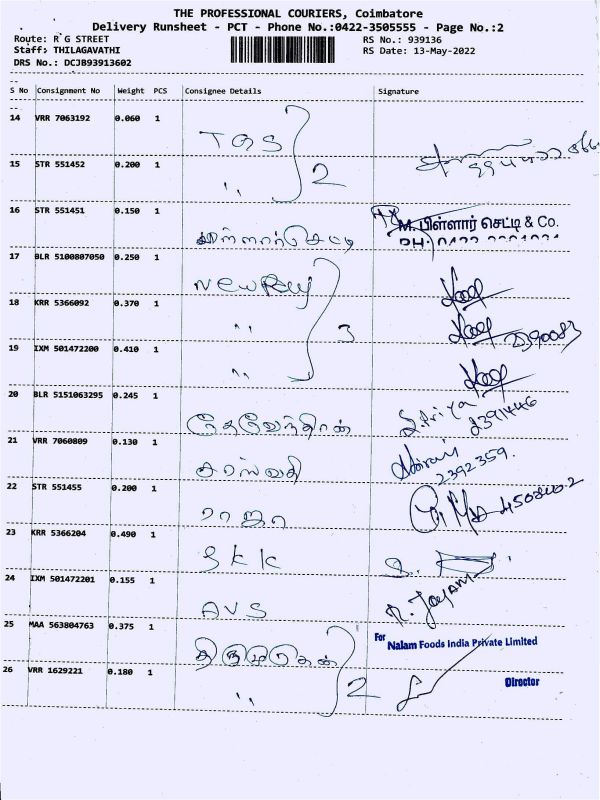 THE PROFESSIONAL COURIERS, Coimbatore
Delivery Runsheet - PCT - Phone No.:0422-3505555 - Page No.:2
Route: R G STREET RS No.: 939136
Staff: THILAGAVATHI RS Date: 13-May-2022
DRS No.: DCJB93913602
S No Consignment No Weight PCS Consignee Details Signature
14 VRR 7063192 0.060 1 TGS
15 STR 551452 0.200 1 ,, 2
16 STR 551451 0.150 1 M. பிள்ளார் செட்டி & Co.
17 BLR 5100807050 0.250 1
18 KRR 5366092 0.370 1 ,, 3
19 IXM 501472200 0.410 1 ,,
20 BLR 5151063295 0.245 1 S.Priya
21 VRR 7060809 0.130 1 சரஸ்வதி 2392359.
22 STR 551455 0.200 1 ராஜா
23 KRR 5366204 0.490 1 SKK
24 IXM 501472201 0.155 1 AVS
25 MAA 563804763 0.375 1 திருமுருகன் For Nalam Foods India Private Limited
26 VRR 1629221 0.180 1 ,, 2 Director